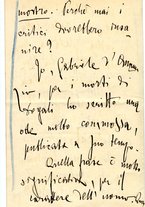 mostro. Perché mai i
critici dovrebbero insa
nire?
Io, Gabriele d'Annun
zio, per i morti di
Dogali ho scritto una
ode molto commossa,
pubblicata a suo tempo.
Quella frase è molto
significativa, per il
carattere dell'uomo